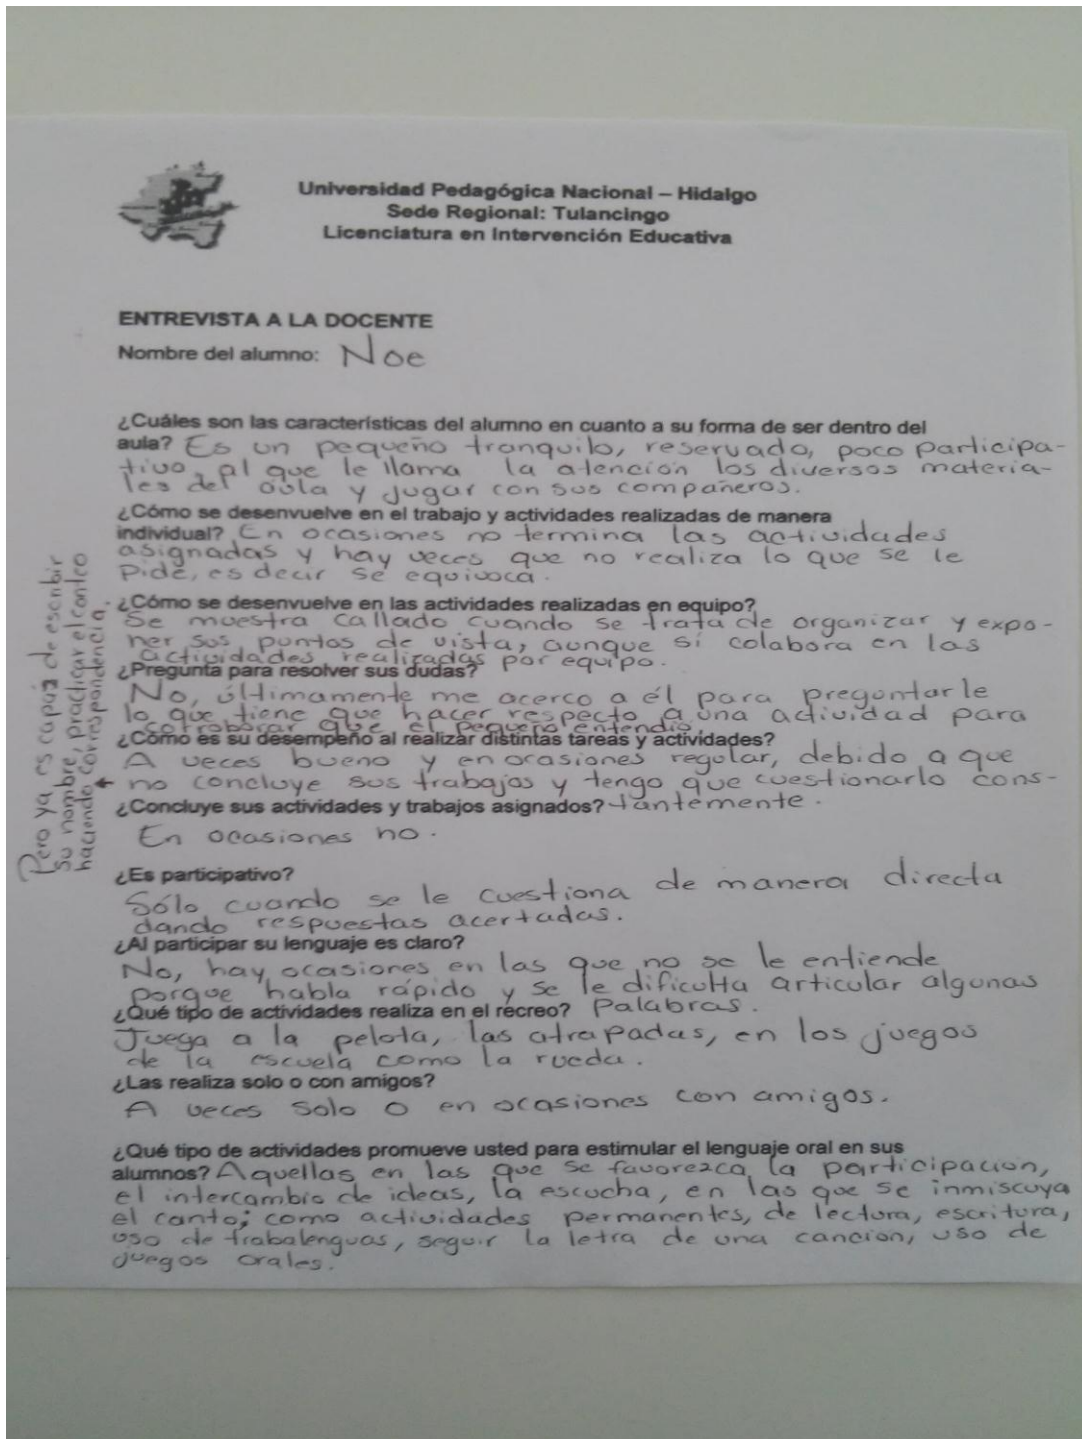 Universidad Pedagógica Nacional – Hidalgo
Sede Regional: Tulancingo
Licenciatura en Intervención Educativa
ENTREVISTA A LA DOCENTE
Nombre del alumno: Noe
¿Cuáles son las características del alumno en cuanto a su forma de ser dentro del
aula? Es un pequeño tranquilo, reservado, poco participa-
tivo, al que le llama la atención los diversos materia-
les del aula y jugar con sus compañeros.
¿Cómo se desenvuelve en el trabajo y actividades realizadas de manera
individual? En ocasiones no termina las actividades
asignadas y hay veces que no realiza lo que se le
pide, es decir se equivoca.
¿Cómo se desenvuelve en las actividades realizadas en equipo?
Se muestra callado cuando se trata de organizar y expo-
ner sus puntos de vista, aunque sí colabora en las
actividades realizadas por equipo.
¿Pregunta para resolver sus dudas?
No, últimamente me acerco a él para preguntarle
lo que tiene que hacer respecto a una actividad para
cotroborar que el pequeño entendió.
¿Cómo es su desempeño al realizar distintas tareas y actividades?
A veces bueno y en ocasiones regular, debido a que
no concluye sus trabajos y tengo que cuestionarlo cons-
¿Concluye sus actividades y trabajos asignados? tantemente.
En ocasiones no.
¿Es participativo?
Sólo cuando se le cuestiona de manera directa
dando respuestas acertadas.
¿Al participar su lenguaje es claro?
No, hay ocasiones en las que no se le entiende
porque habla rápido y se le dificulta articular algunas
¿Qué tipo de actividades realiza en el recreo? Palabras.
Juega a la pelota, las atrapadas, en los juegos
de la escuela como la rueda.
¿Las realiza solo o con amigos?
A veces solo o en ocasiones con amigos.
¿Qué tipo de actividades promueve usted para estimular el lenguaje oral en sus
alumnos? Aquellas en las que se favorezca la participación,
el intercambio de ideas, la escucha, en las que se inmiscuya
el canto; como actividades permanentes, de lectura, escritura,
uso de trabalenguas, seguir la letra de una canción, uso de
juegos orales.
Pero ya es capaz de escribir
su nombre, practicar el conteo
haciendo correspondencia.